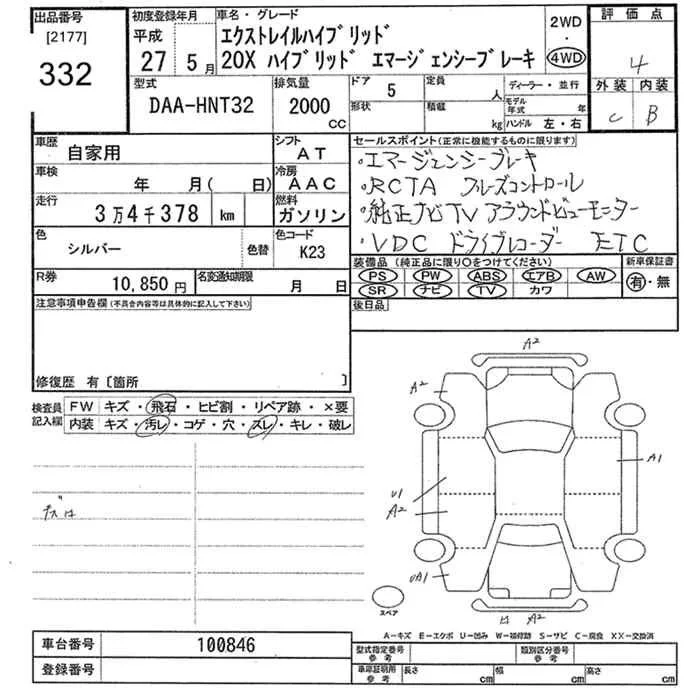 出品番号
[2177]
332
初度登録年月
平成
27 年 5 月
車名・グレード
エクストレイルハイブリッド
20X ハイブリッド エマージェンシーブレーキ
2WD
・
4WD
評価点
4
外装 内装
C B
型式
DAA-HNT32
排気量
2000
CC
ドア 5
形状
定員 人
積載 kg
ディーラー・並行
モデル年式 年
ハンドル 左・右
車歴
自家用
シフト
AT
車検
年 月( 日)
冷房
AAC
走行
3万4千378 km
燃料
ガソリン
色
シルバー
色替
色コード
K23
R券
10,850円
名変通知期限
月 日
セールスポイント(正常に機能するものに限ります)
・エマージェンシーブレーキ
・RCTA クルーズコントロール
・純正ナビTV アラウンドビューモニター
・VDC ドライブレコーダー ETC
装備品(純正品に限り○をつけてください)
PS PW ABS エアB AW
SR ナビ TV カワ
新車保証書
有・無
後日品
注意事項申告欄(不具合内容等は具体的に記入して下さい)
修復歴 有〔箇所 〕
検査員
記入欄
FW キズ・飛石・ヒビ割・リペア跡・×要
内装 キズ・汚レ・コゲ・穴・スレ・キレ・破レ
A2
A2
A1
U1
A2
UA1
A2
スペア
A-キズ E-エクボ U-凹み W-補修跡 S-サビ C-腐食 XX-交換済
車台番号
100846
登録番号
型式指定番号
参考
類別区分番号
参考
車庫証明用
参考
長さ cm
幅 cm
高さ cm